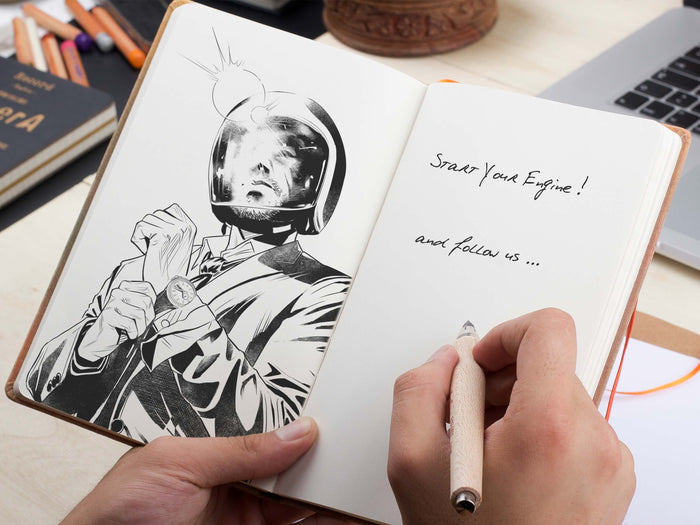 Record
erA
Start Your Engine!
and follow us...